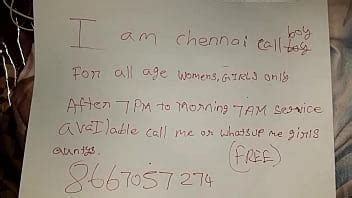 I am chennai call boy
For all age womens, GIRLS only
After 7 PM to morning 7 AM service
available call me or whatsup me girls
auntys. (FREE)
8667057274